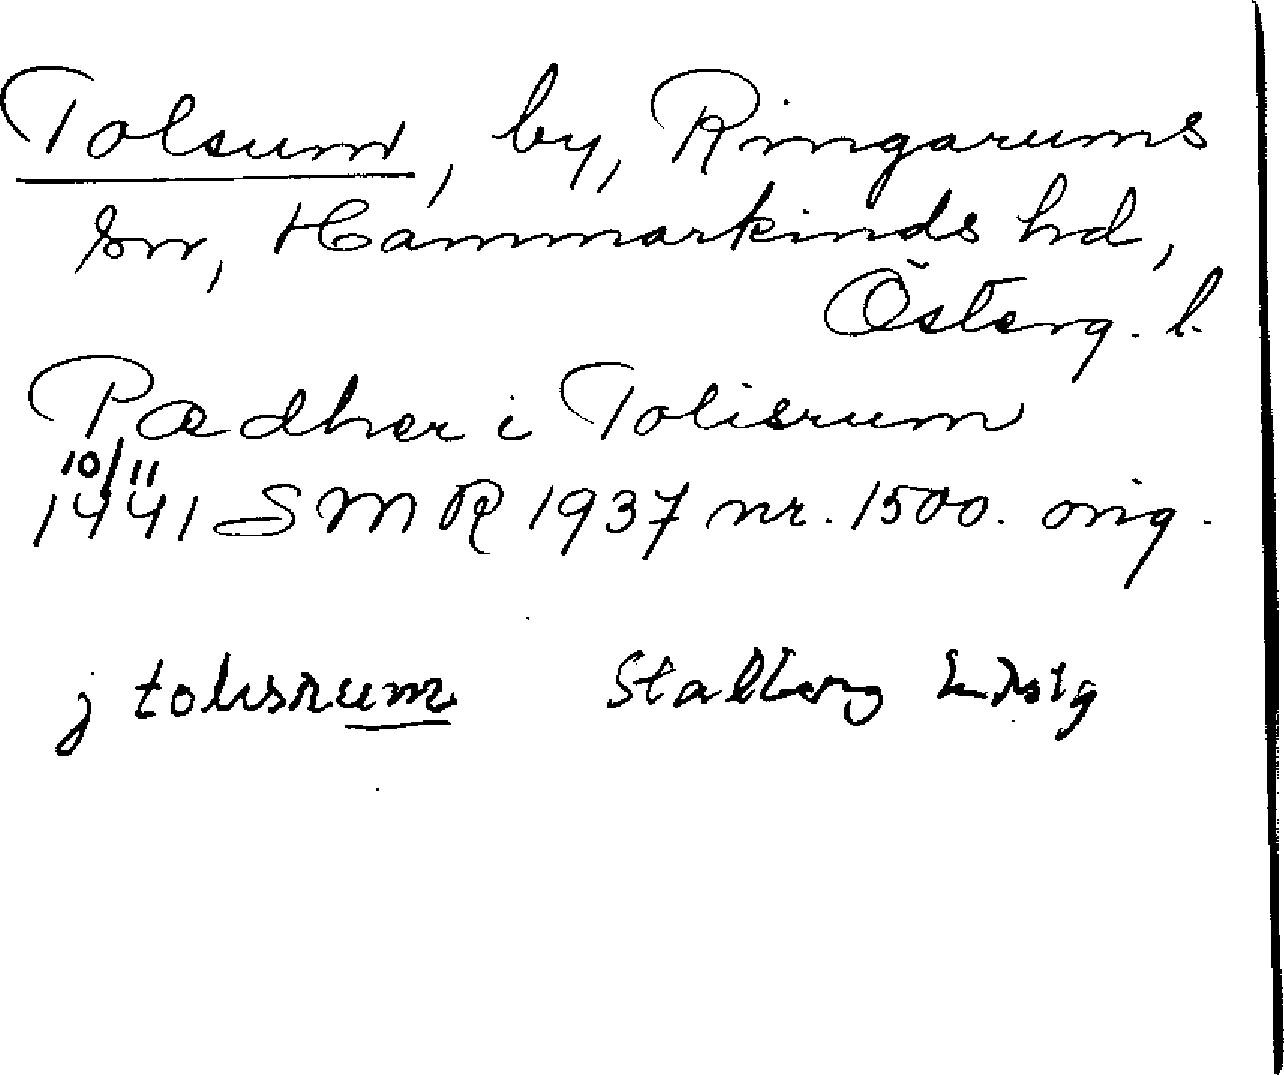 Tolsum, by, Ringarums
sn, Hammarkinds hd,
Österg. l.
Pædher i Tolisrum
10/11
1441 SMR 1937 nr. 1500. orig.
j tolisrum Stallberg